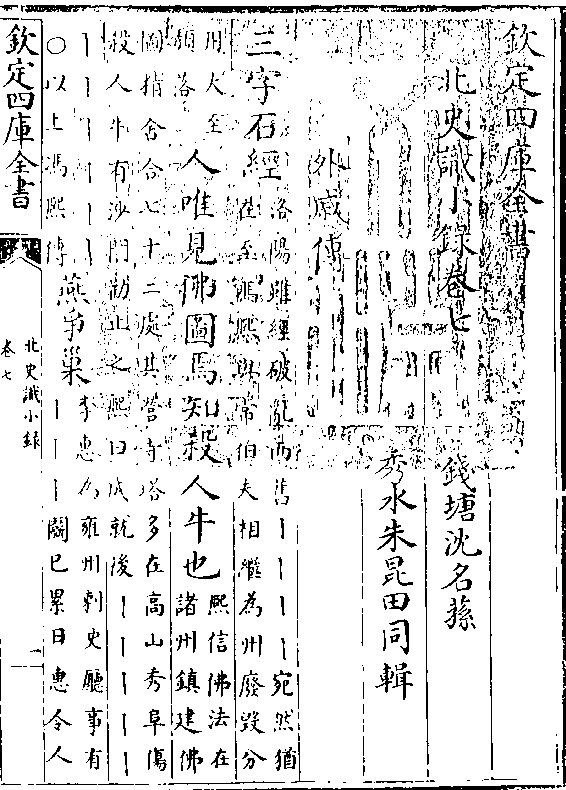 欽定四庫全書
北史識小錄卷七
錢塘沈名蓀
秀水朱昆田同輯
外戚傳
三字石經洛陽雖經破亂而舊丨丨丨丨宛然猶
在至馮熙與常伯夫相繼為州廢毀分
用大至
頹落
人唯見佛圖焉知殺人牛也熙信佛法在
諸州鎮建佛
圖精舍合七十二處其營寺塔多在高山秀阜傷
殺人牛有沙門勸止之熙曰成就後丨丨丨丨丨
丨丨丨丨丨丨
○以上馮熙傳
燕爭巢李惠為雍州刺史廳事有
丨丨丨鬬已累日惠令人
欽定四庫全書
北史識小錄
卷七
一